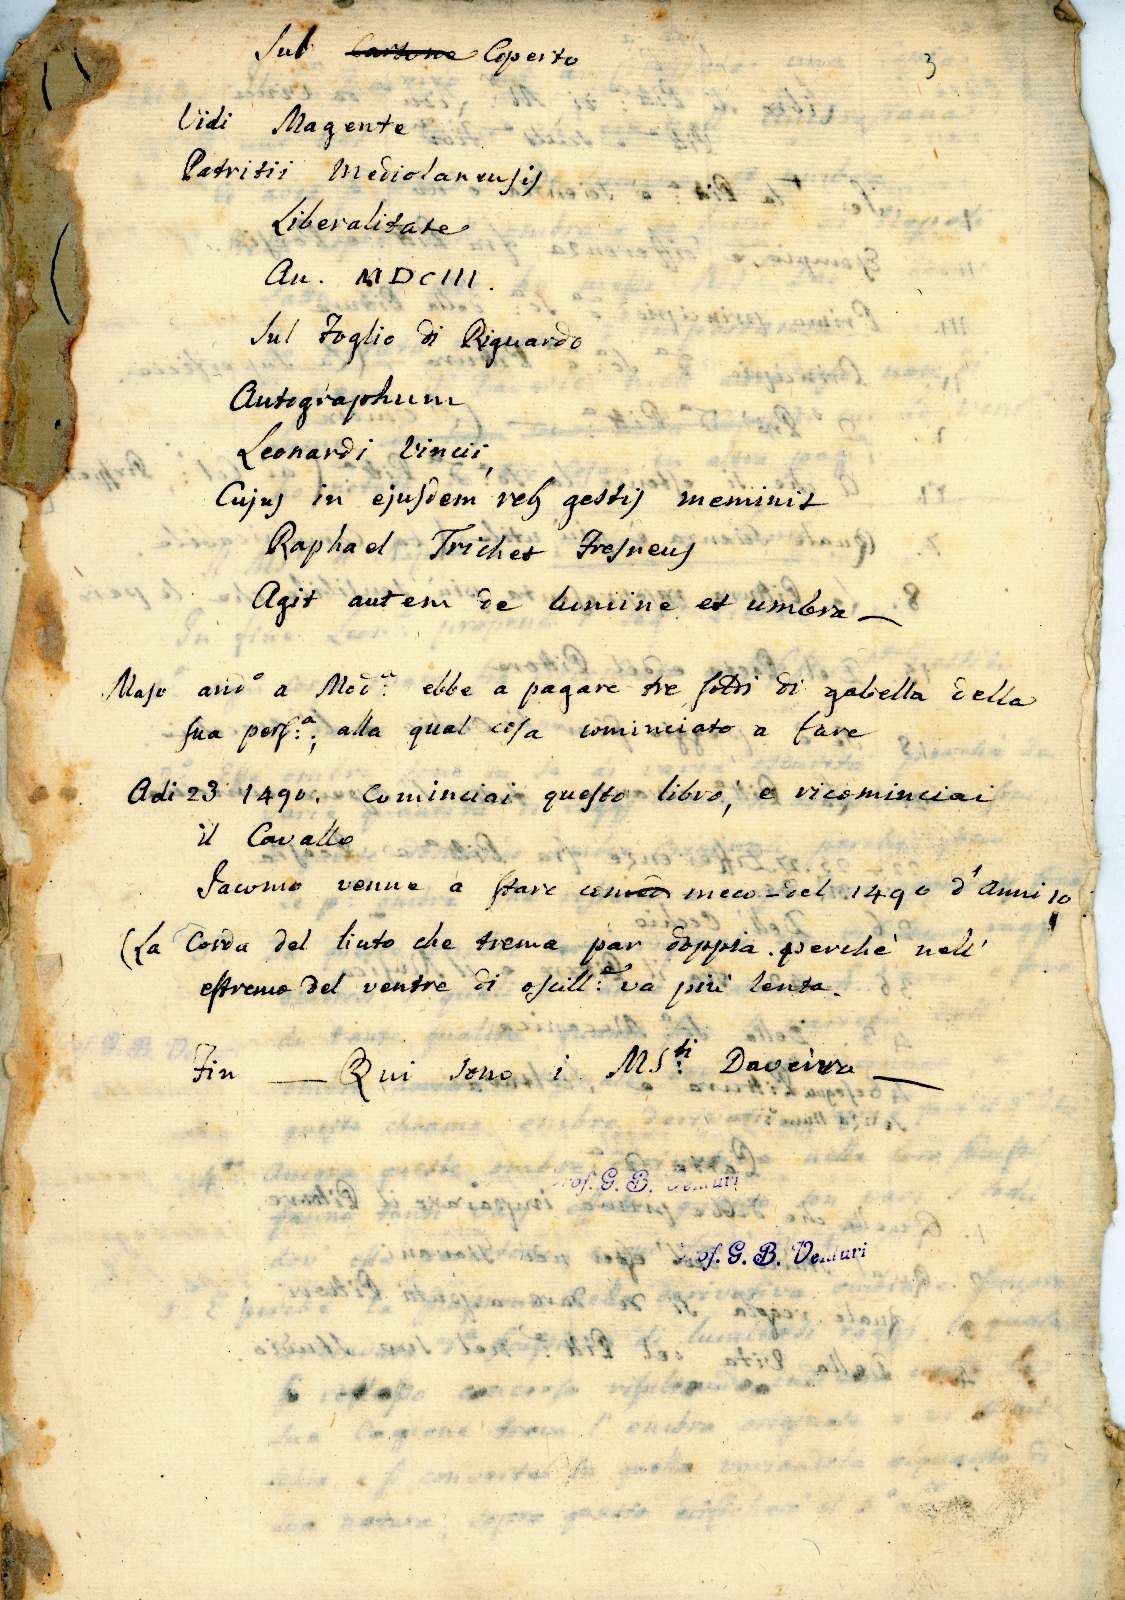 Sul ~~Cartone~~ Coperto
3
Vidi Magente
Patritii Mediolanensis
Liberalitate
An. MDCIII.
Sul Foglio di Riguardo
Autographum
Leonardi Vincii,
Cujus in ejusdem reb gestis meminit
Raphael Trichet Fresneus
Agit autem de lumine et umbra —
Maso andº a Modª: ebbe a pagare tre soldi di gabella della
sua persª:; alla qual cosa cominciato a fare
Adi 23 1490. Cominciai questo libro, e ricominciai
il Cavallo
Jacomo venne a stare meco - del 1490 d'Anni 10
(La Corda del liuto che trema par doppia perchè nell'
estremo del ventre di oscillᵉ: va più lenta.
Fin — Qui sono i MSᵗⁱ:
Prof. G. B. Venturi
Prof. G. B. Venturi